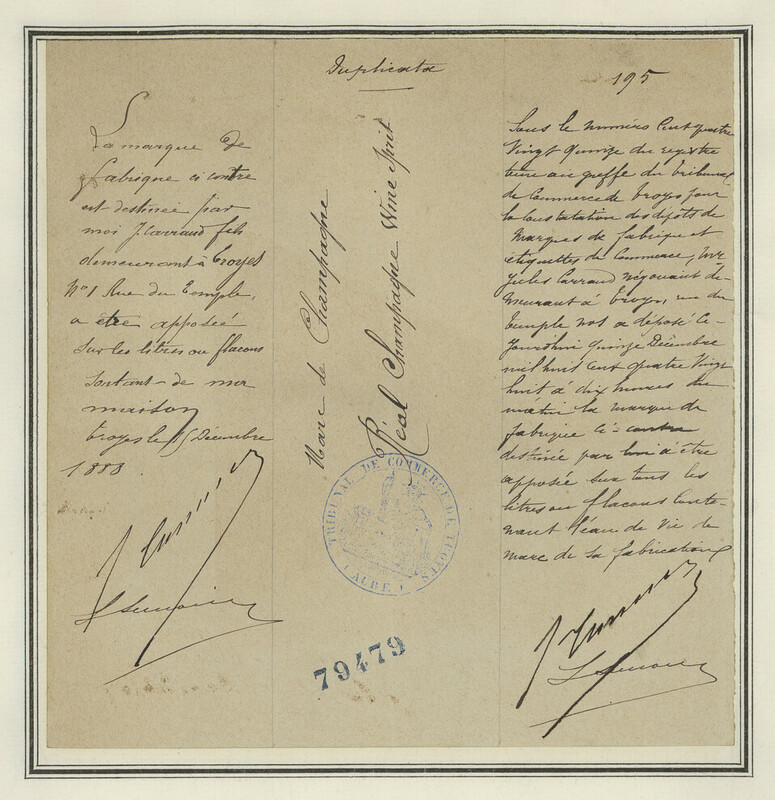 Duplicata
195
La marque de
fabrique ci contre
est destinée par
moi J. Carraud fils
demeurant à Troyes
No 1 Rue du Temple,
a être apposée
sur les litres ou flacons
sortant de ma
maison
Troyes le 15 Décembre
1888.
Marc de Champagne
Réal Champagne Wine Spirit
TRIBUNAL DE COMMERCE DE TROYES
(AUBE)
79479
Sous le numéro Cent quatre
Vingt quinze du registre
tenu au greffe du tribunal
de Commerce de Troyes pour
la Constatation des dépôts de
Marques de fabrique et
étiquettes de Commerce, Mr
Jules Carraud négociant de-
meurant à Troyes, rue du
Temple no 1 a déposé ce-
jourd'hui quinze Décembre
mil huit cent quatre Vingt
huit à dix heures du
matin la marque de
fabrique ci-contre
destinée par lui à être
apposée sur tous les
litres ou flacons Conte-
nant l'eau de Vie de
marc de sa fabrication